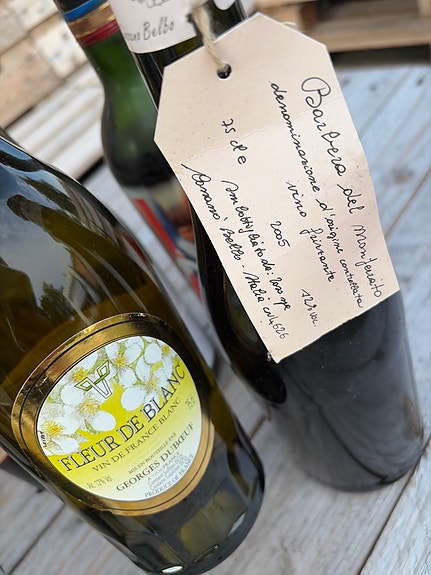 Belbo
Barbera del Monferrato
denominazione d'origine controllata
vino frizzante
2005
12% vol.
75 cl e
Imbottigliato da:
Italia
FLEUR DE BLANC
VIN DE FRANCE BLANC
MIS EN BOUTEILLE PAR
GEORGES DUBŒUF
PRODUCE OF FRANCE
75 cl